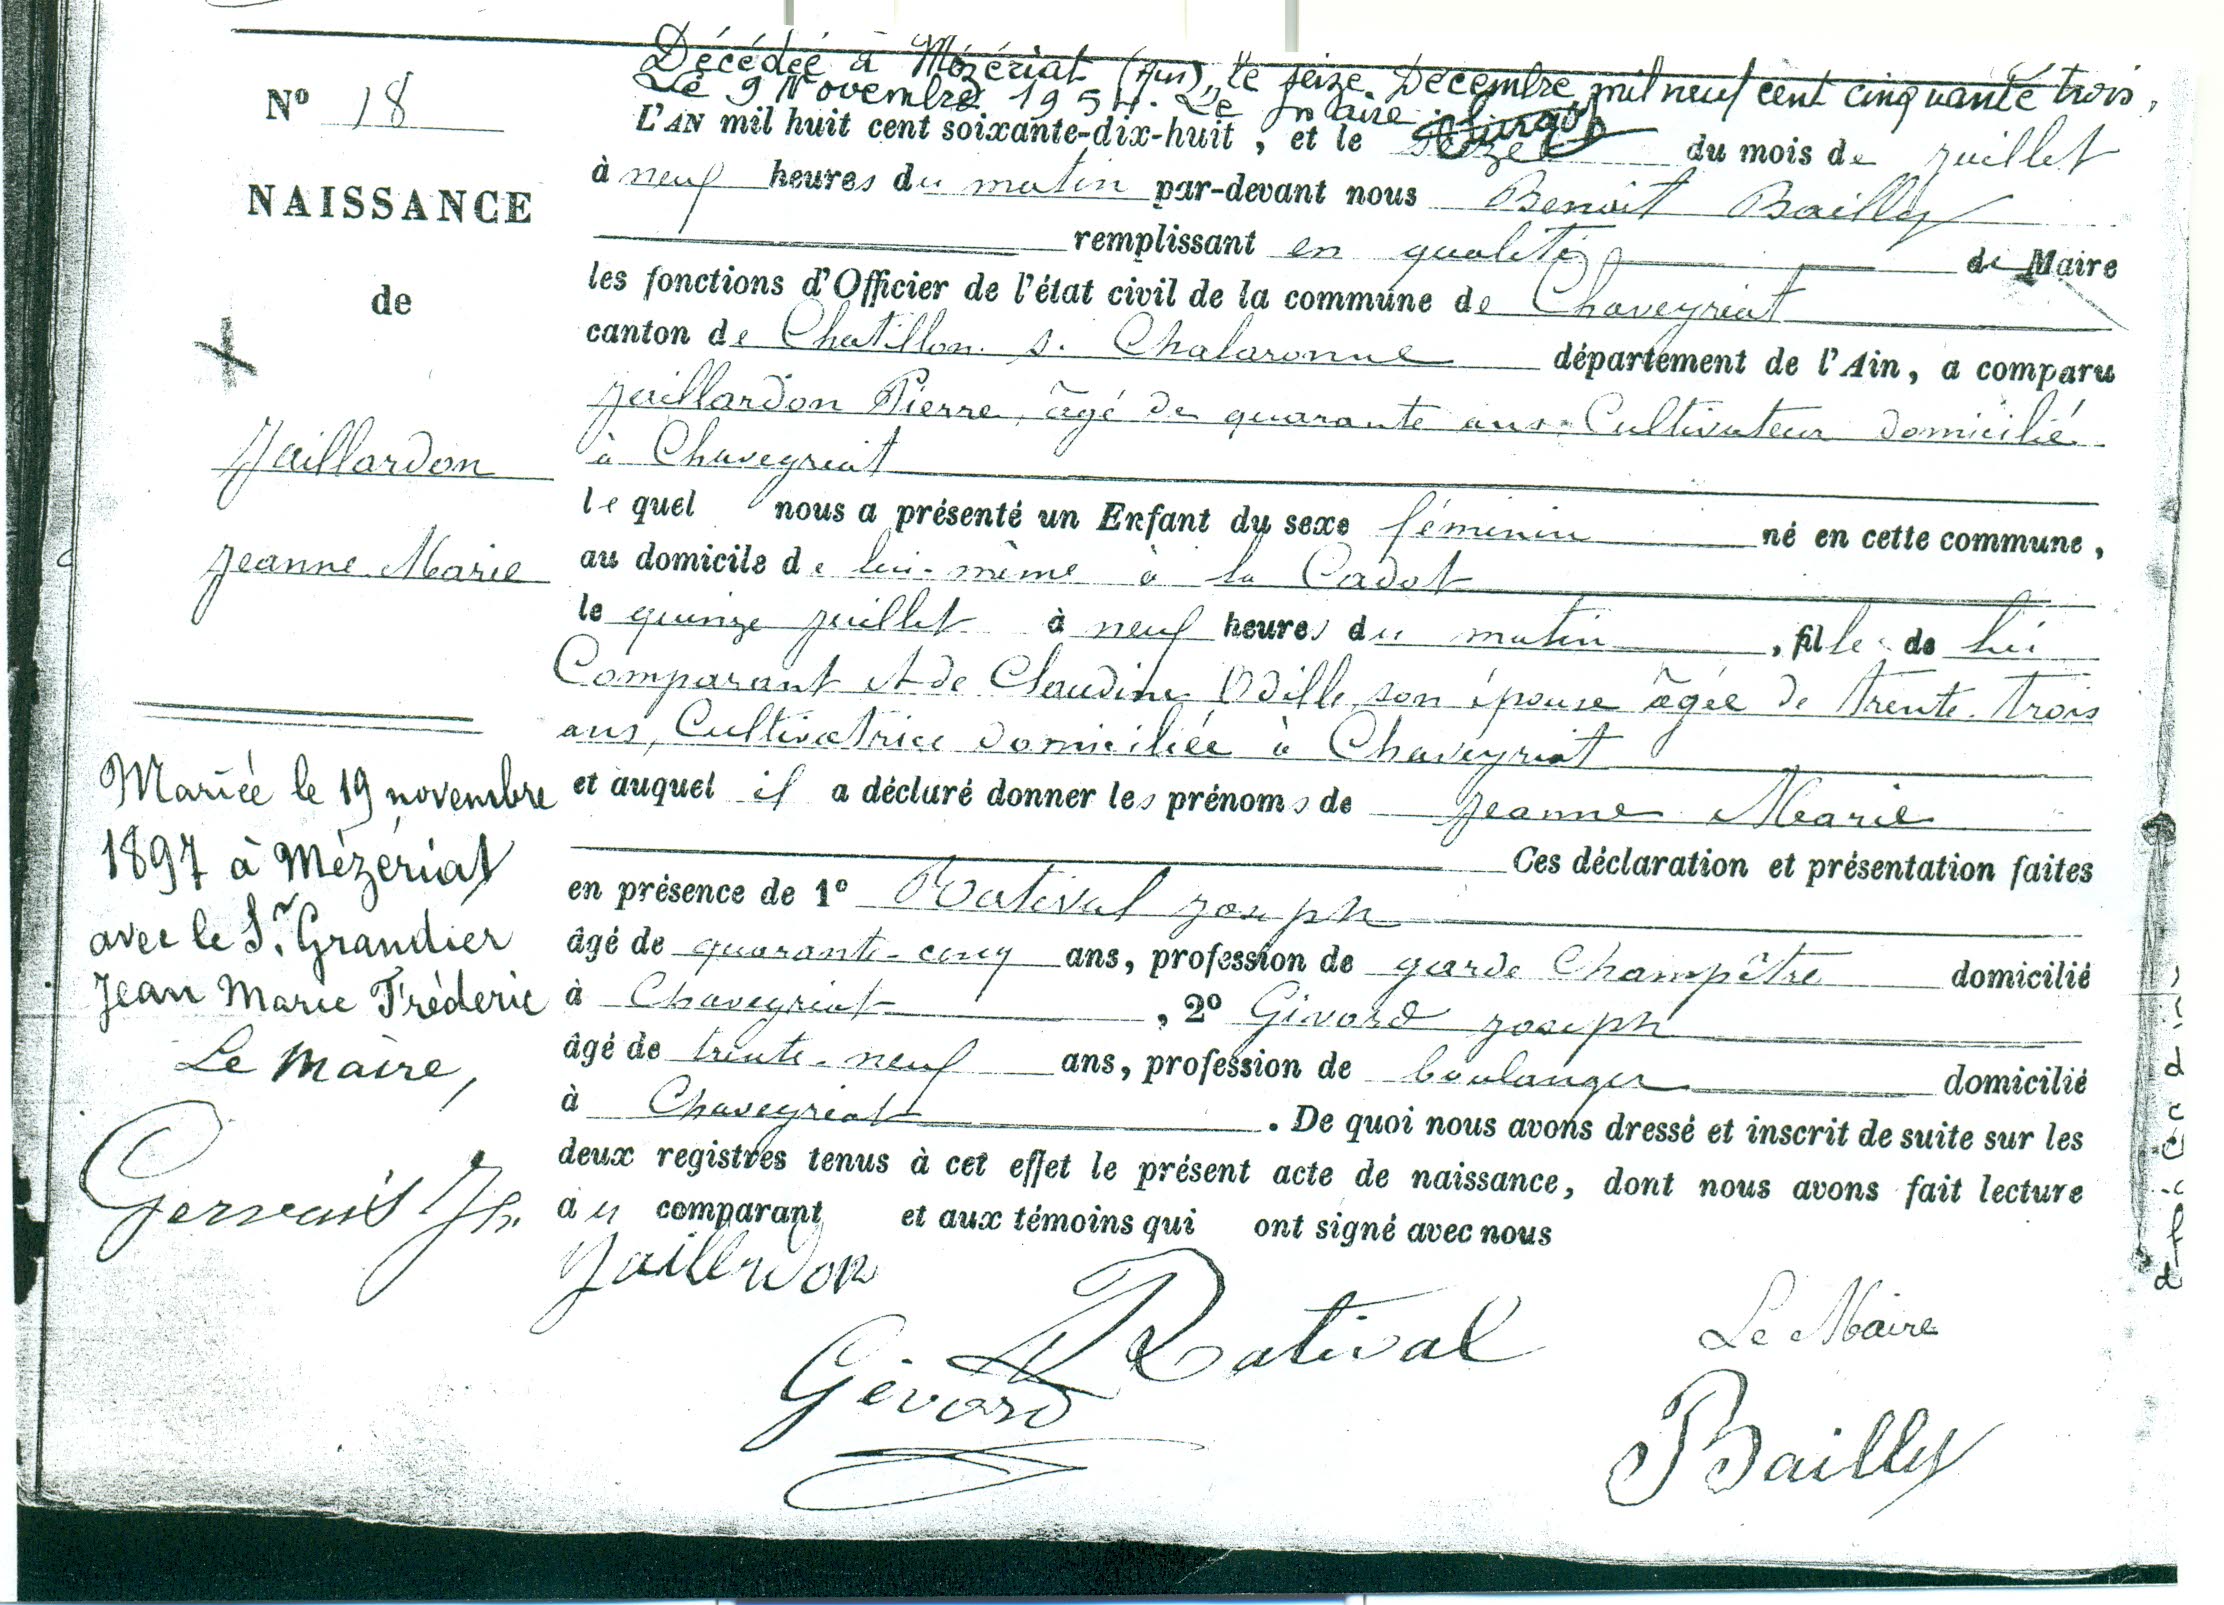 Décédée à Mézériat (Ain), le seize Décembre mil neuf cent cinquante trois,
Le 9 Novembre 1954. Le Maire
Nº 18
NAISSANCE
de
Jaillardon
Jeanne Marie
Mariée le 19 novembre
1897 à Mézériat
avec le Sr Grandier
Jean Marie Fréderic
Le Maire,
Gervais Jh.
L'AN mil huit cent soixante-dix-huit, et le seize du mois de juillet
à neuf heures du matin par-devant nous Benoit Bailly
remplissant en qualité de Maire
les fonctions d'Officier de l'état civil de la commune de Chaveyriat
canton de Chatillon s. Chalaronne département de l'Ain, a comparu
Jaillardon Pierre, âgé de quarante ans Cultivateur domicilié
à Chaveyriat
lequel nous a présenté un Enfant du sexe féminin né en cette commune,
au domicile de lui-même à la Cadot
le quinze juillet à neuf heures du matin, fille de lui
Comparant et de Claudine Odille son épouse âgée de trente-trois
ans, Cultivatrice domiciliée à Chaveyriat
et auquel il a déclaré donner les prénoms de Jeanne Marie
Ces déclaration et présentation faites
en présence de 1º Ratival Joseph
âgé de quarante-cinq ans, profession de garde Champêtre domicilié
à Chaveyriat, 2º Givord Joseph
âgé de trente-neuf ans, profession de boulanger domicilié
à Chaveyriat. De quoi nous avons dressé et inscrit de suite sur les
deux registres tenus à cet effet le présent acte de naissance, dont nous avons fait lecture
au comparant et aux témoins qui ont signé avec nous
Jaillardon
Ratival
Givord
Le Maire
Bailly